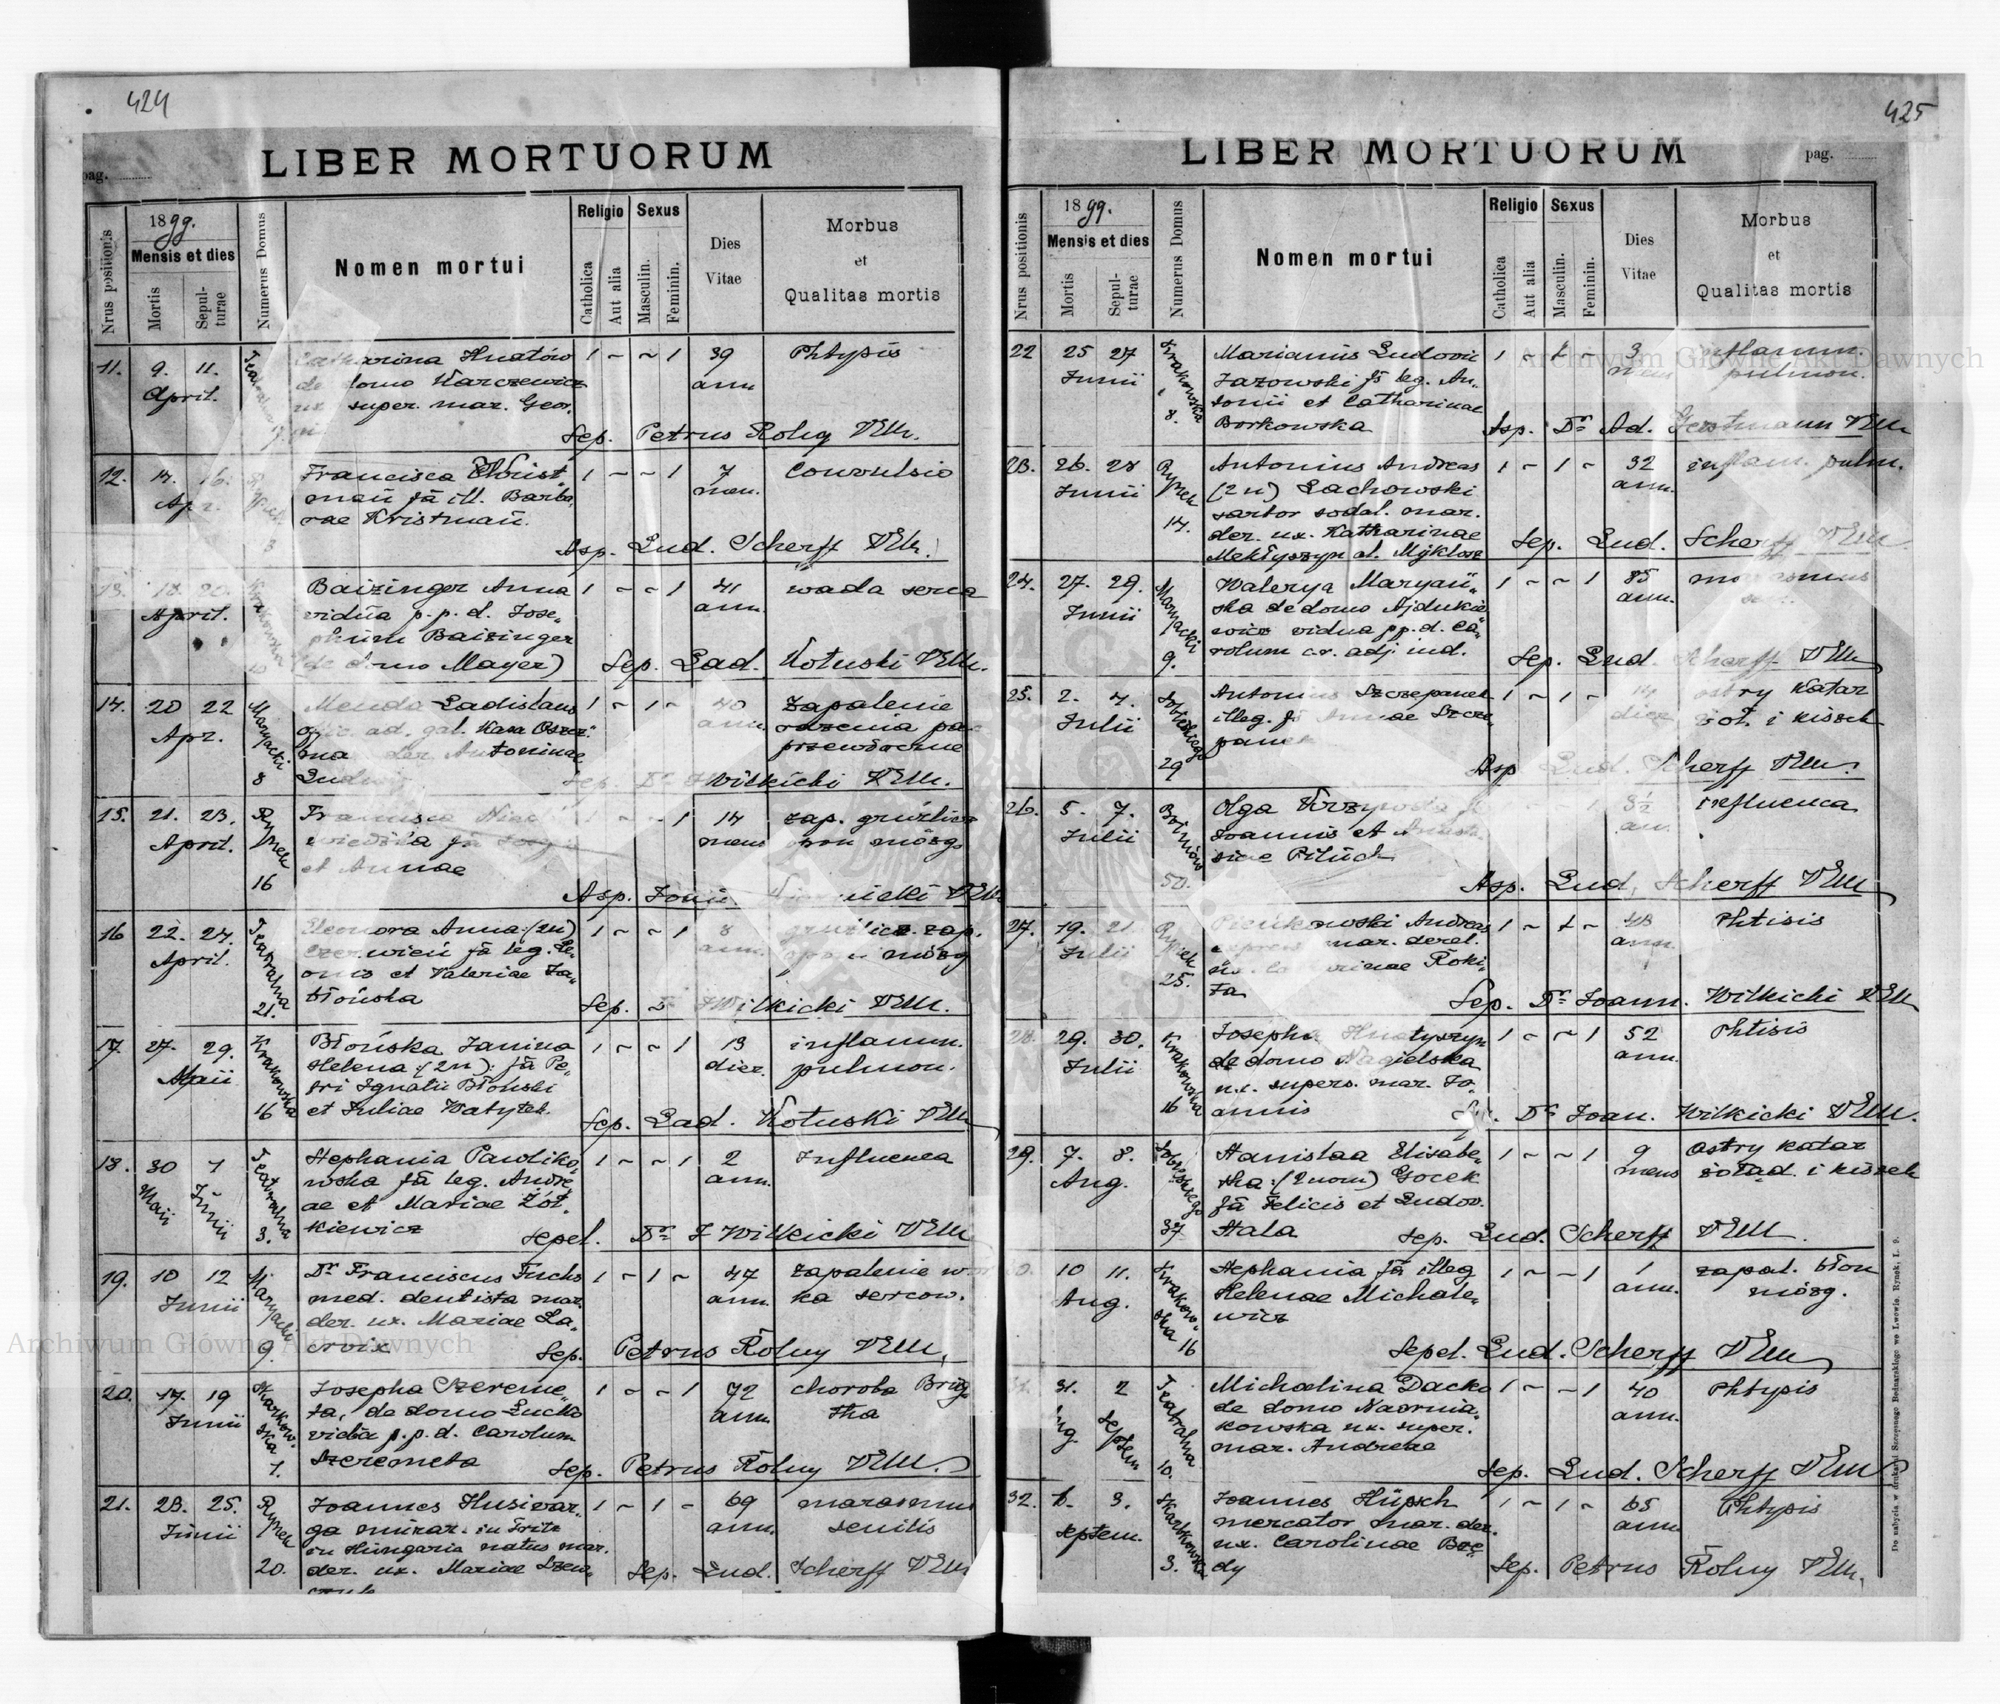 424
LIBER MORTUORUM
pag.
Nrus positionis
1899.
Mensis et dies
Mortis
Sepulturae
Numerus Domus
Nomen mortui
Religio
Catholica
Aut alia
Sexus
Masculin.
Feminin.
Dies
Vitae
Morbus
et
Qualitas mortis
11. 9. 11. Catharina Hnatów 1 ~ ~ 1 39 Phtysis
April. de domo Karczewicz ann.
ux. super. mar. Geor.
Sep. Petrus Rolny VEM.
12. 14. 16. Francisca Christ 1 ~ ~ 1 7 Convulsio
Apr. mań fa ill. Barba men.
rae Kristmań.
3
Asp. Lud. Scherff VEM.
13. 18. 20. Krakowska Baizinger Anna 1 ~ ~ 1 41 wada serca
April. vidua p. p. d. Jose ann.
phum Baizinger
10 (de domo Mayer) Sep. Lad. Kotuski VEM.
14. 20 22 Maryacki Menda Ladislaus 1 ~ 1 ~ 40 Zapalenie
Apr. offic. ad. gal. Kasa Oszcz. ann.
mar. der. Antoninae przewóczne
8 Ludwig Sep. Dr J Wilkicki VEM.
15. 21. 23. Rynek Francisca ~ ~ 1 14 zap. gruźlicz
April. mens opon mózg
et Annae
16 Asp. VEM
16 22. 24. Teatralna Eleonora Anna (2n) 1 ~ ~ 1 8 gruźlicz. zap.
April. Czerwień fa leg. Le ann. opon mózg
onis et Valeriae Ja
21. błońska Sep. Dr J Wilkicki VEM.
17. 27. 29. Krakowska Błońska Janina 1 ~ ~ 1 13 inflamm.
Maii Helena (2n) fa Pe dier. pulmon.
tri Ignatii Błoński
16 et Juliae Watytek. Sep. Lad. Kotuski VEM
18. 30 1 Teatralna Stephania Pawliko 1 ~ ~ 1 2 Influenca
Maii Junii wska fa leg. Andre ann.
ae et Mariae Żół
3. kiewicz Sepel. Dr J Wilkicki VEM
19. 10 12 Maryacki Dr Franciscus Fuchs 1 ~ 1 ~ 47 zapalenie
Junii med. dentista mar. ann. ka sercow.
der. ux. Mariae La
9. croix Sep. Petrus Rolny VEM.
20. 17 19 Skarkowska Josepha Szereme 1 ~ ~ 1 72 choroba Brig
Junii ta, de domo Lucka ann. tha
vidua p. p. d. Carolum
1. Szeremeta Sep. Petrus Rolny VEM.
21. 23. 25. Rynek Joannes Husiwar 1 ~ 1 ~ 69 marasmus
Junii ga murar. in Fritz ann. senilis
in Hungaria natus mar.
20. der. ux. Mariae Szew Sep. Lud. Scherff VEM
czuk
425
LIBER MORTUORUM
pag.
Nrus positionis
1899.
Mensis et dies
Mortis
Sepulturae
Numerus Domus
Nomen mortui
Religio
Catholica
Aut alia
Sexus
Masculin.
Feminin.
Dies
Vitae
Morbus
et
Qualitas mortis
22 25 27 Krakowska Marianus Ludovic 1 ~ 1 ~ 3 inflamm.
Junii Jazowski fs leg. An mens pulmon.
tonii et Catharinae
8. Borkowska Asp. Dr Ad. Gerstmann VEM
23. 26. 28 Rynek Antonius Andreas 1 ~ 1 ~ 32 inflam. pulm.
Junii (2n) Lachowski ann.
sartor sodal. mar.
14. der. ux. Katharinae Sep. Lud. Scherff VEM
Mektyszyn al. Myklosz
24. 27. 29. Maryacki Walerya Maryań 1 ~ ~ 1 85 marasmus
Junii ska de domo Ajdukie ann.
wicz vidua pp. d. Ca
9. rolum c. r. adj. iud. Sep. Lud. Scherff VEM
25. 2. 4. Sobieskiego Antonius Szczepanek 1 ~ 1 ~ 14 ostry katar
Julii illeg. fs Annae Szcze dier. żoł. i kiszek
panek
29 Asp Lud. Scherff VEM.
26. 5. 7. Olga Krzywda fa ~ 1 3½ influenca
Julii Joannis et Anasta an.
siae Piluch
50. Asp. Lud. Scherff VEM
27. 19. 21. Rynek Pieńkowski Andreas 1 ~ 1 ~ 43 Phtisis
Julii mar. derel. ann.
25. ux. Catharinae Roki
ta Sep. Dr Joann. Wilkicki VEM
28. 29. 30. Krakowska Josepha Hnatyszyn 1 ~ ~ 1 52 Phtisis
Julii de domo Nagielska ann.
ux. supers. mar. Jo
16 annis Sep. Dr Joan. Wilkicki VEM.
29. 7. 8. Sobieskiego Stanislaa Elisabe 1 ~ ~ 1 9 Ostry katar
Aug. tha (2nom) Gocek mens żołąd. i kiszek
fa Felicis et Ludov.
37 Stala Sep. Lud. Scherff VEM.
30. 10 11. Krakowska Stephania fa illeg 1 ~ ~ 1 1 zapal. błon
Aug. Helenae Michale ann. mózg.
16 wicz
Sepel. Lud. Scherff VEM
31. 31. 2 Teatralna Michalina Dacko 1 ~ ~ 1 40 Phtypis
Aug Septem de domo Nawrnia ann.
kowska ux. super.
10. mar. Andreae
Sep. Lud. Scherff VEM
32. 6. 3. Skarkowska Joannes Hüpsch 1 ~ 1 ~ 65 Phtypis
Septem. mercator mar. der. ann
ux. Carolinae Bzę
3. dy Sep. Petrus Rolny VEM.
Do nabycia w drukarni Szczęsnego Bednarskiego we Lwowie. Rynek, l. 9.
Archiwum Główne Akt Dawnych
Archiwum Główne Akt Dawnych